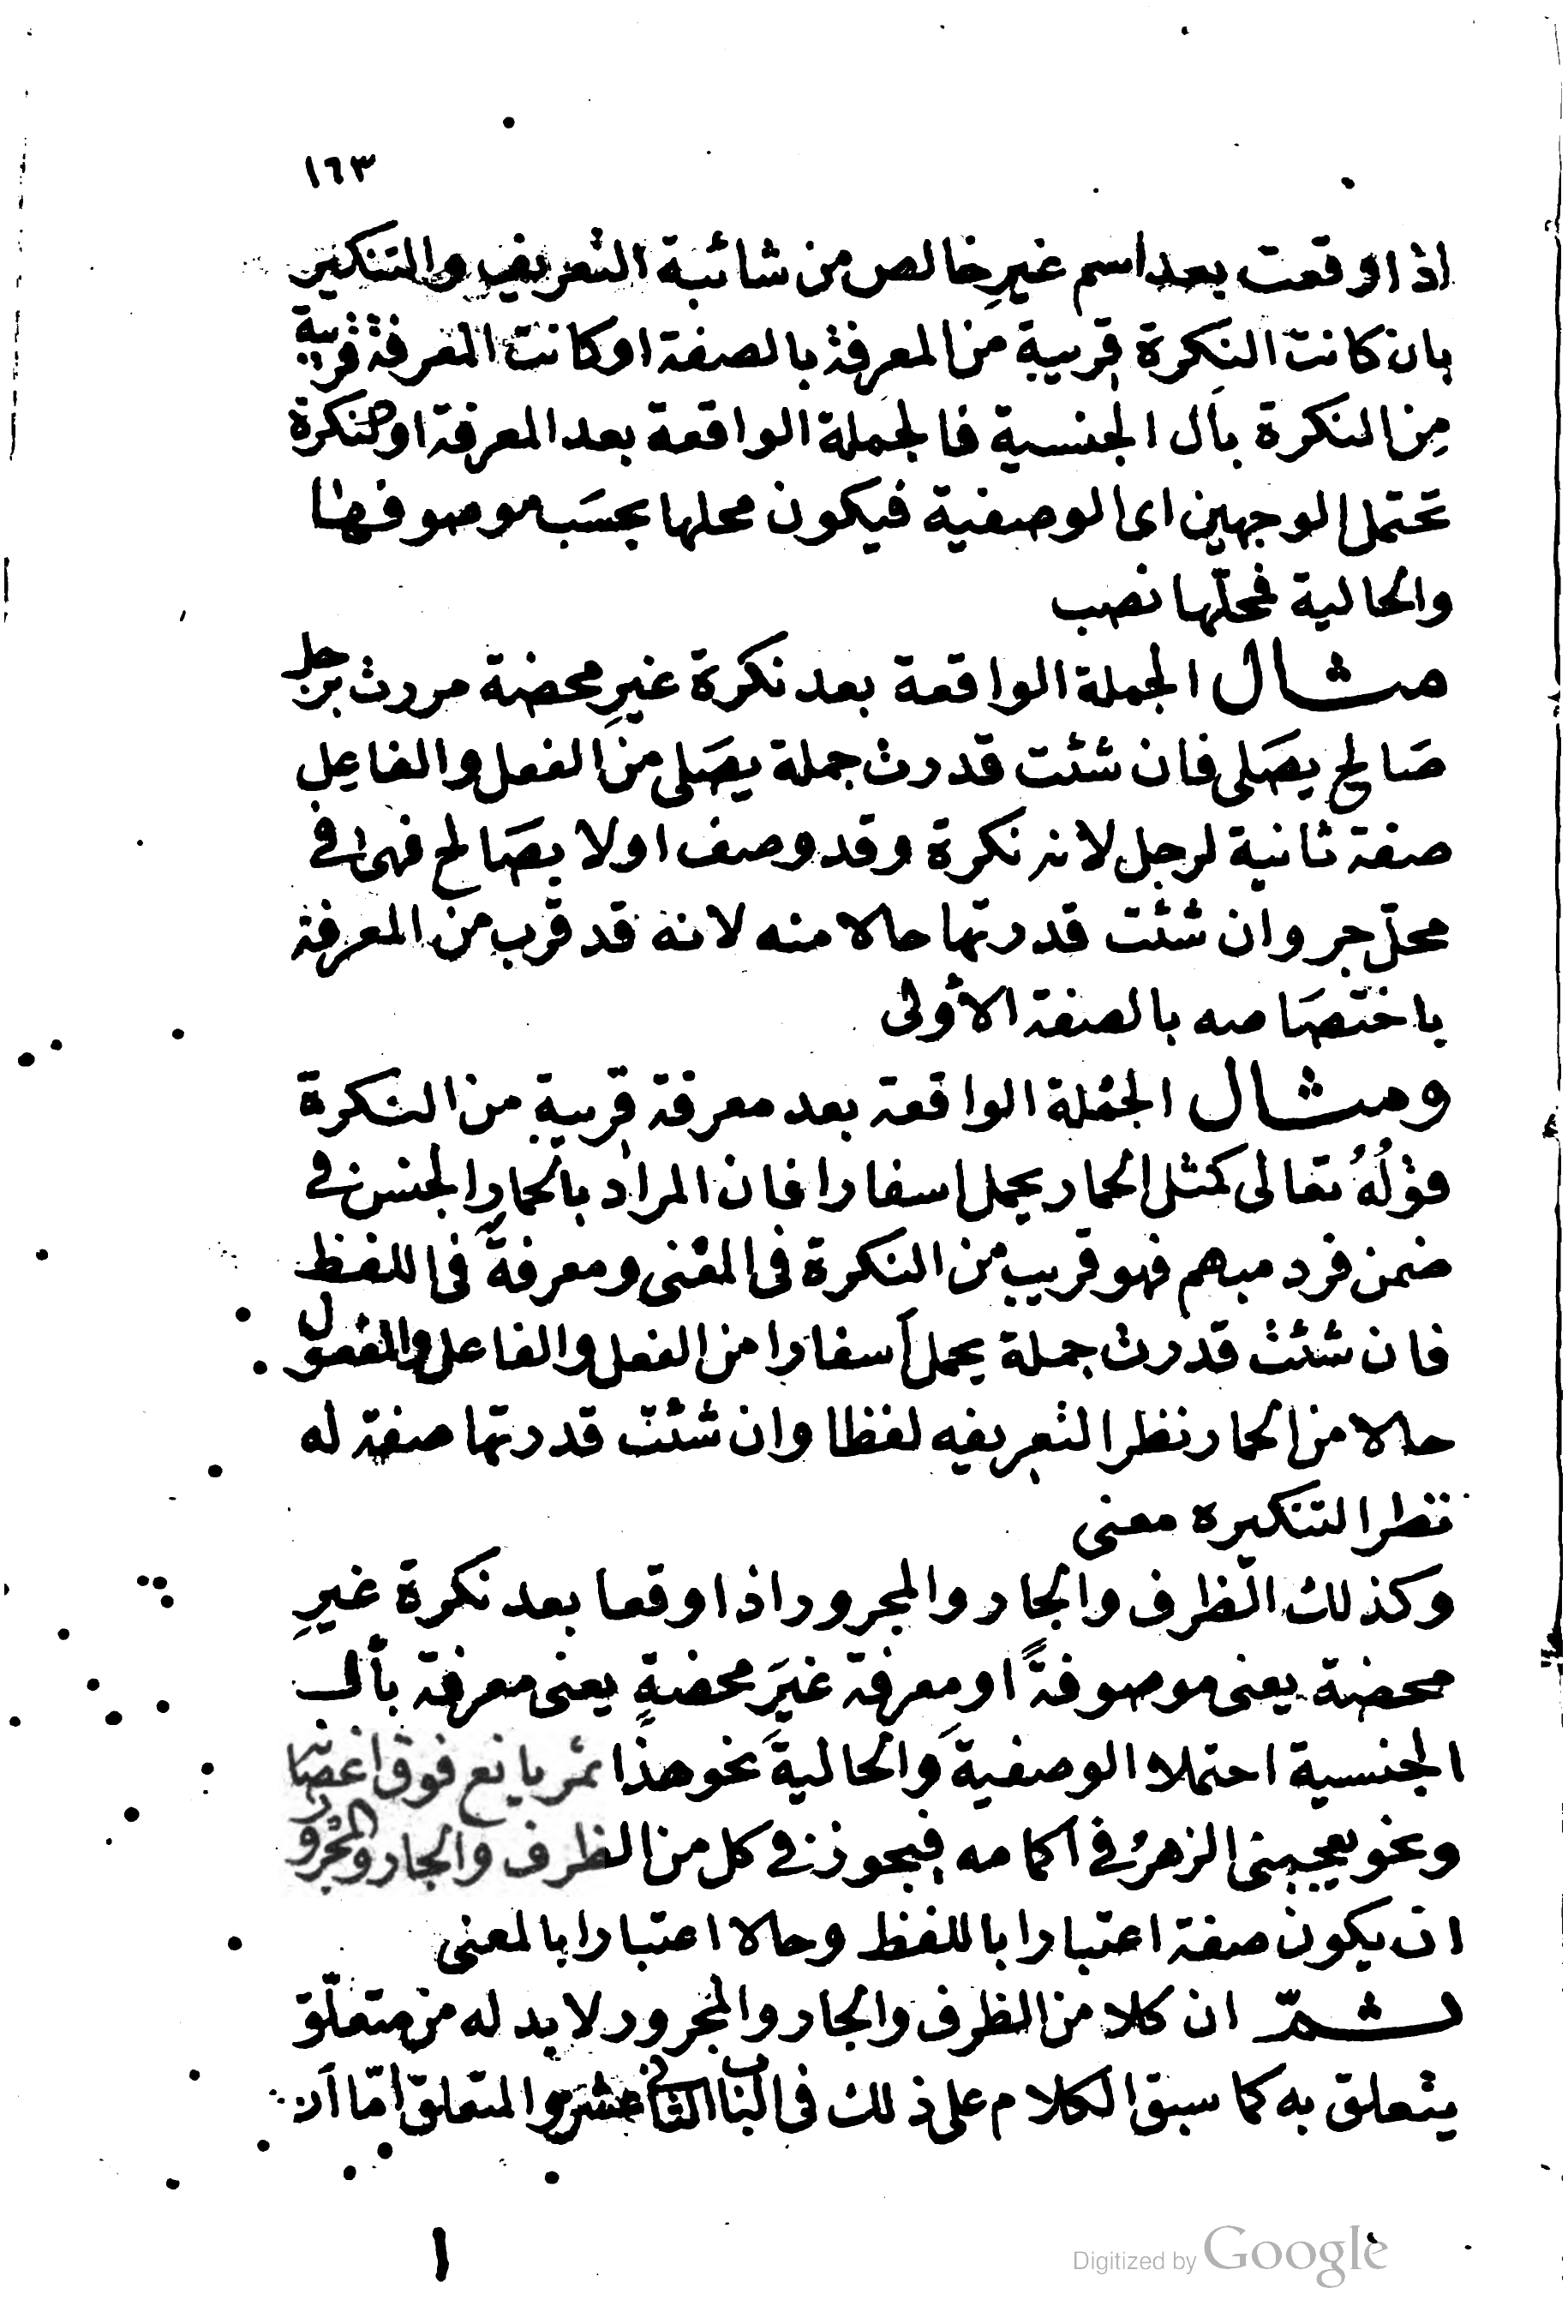 ١٦٣
اذا وقعت بعد اسم غيرِ خالص من شائبة التعريف والتنكير
بان كانت النكرة قريبة من المعرفة بالصفة او كانت المعرفة قريبة
مِن النكرة بأل الجنسية فالجملة الواقعة بعد المعرفة او النكرة
تحتمل الوجهين اى الوصفية فيكون محلها بحسَب موصوفها
والحالية فمحلّها نصب
مثال الجملة الواقعة بعد نكرة غيرِ محضة مررت برجل
صَالح يصَلى فان شئت قدرت جملة يصَلى من الفعل والفاعِل
صفة ثانية لرجل لانه نكرة وقد وصف اولا بصَالح فهى فى
محلّ جر وان شئت قدرتها حالا منه لانه قد قرب من المعرفة
باختصَاصه بالصفة الأولى
ومثال الجمْلة الواقعة بعد معرفة قريبةٍ من النكرة
قوْلُهُ تعالى كمثل الحمار يحمل اسفارا فان المراد بالحمارِ الجنس فى
ضمن فرد مبهم فهو قريب من النكرة فى المعْنى ومعرفةً فى اللفظ
فان شئت قدرت جملة يحمل أسفارا من الفعل والفاعل والمفعول
حالا من الحمار نظرا لتعريفه لفظا وان شئت قدرتها صفة له
نظرا لتنكيره معنى
وكذلك الظرف والجار والمجرور اذا وقعا بعد نكرة غيرِ
محضة يعنى موصوفةً او معرفة غيَر محضةٍ يعنى معرفة بأل
الجنسية احتملا الوصفيةَ والحاليةَ نحو هذا ثمر يانع فوق اغصانه
ونحو يعجبنى الزهرُ فى اكمامه فيجوز فى كل من الظرف والجار والمجرور
ان يكون صفة اعتبارا باللفظ وحالا اعتبارا بالمعنى
ثمّ ان كلا من الظرف والجار والمجرور لا بد له من متعلّق
يتعلق به كما سبق الكلام على ذلك فى الباب الثانى عشر والمتعلق امّا أن
١
Digitized by Google